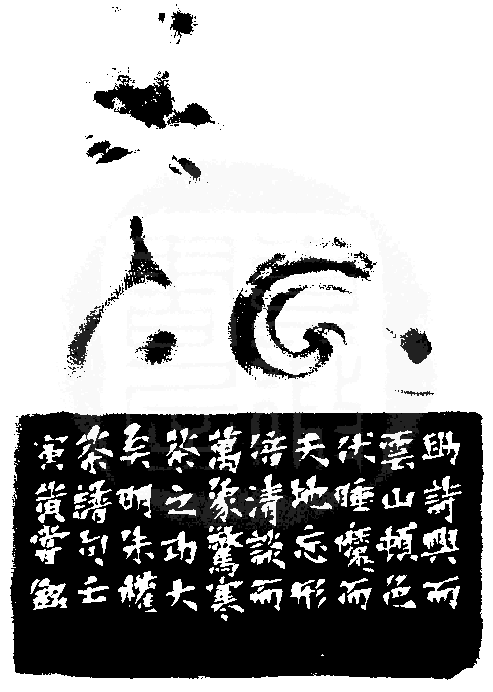 助詩興而
雲山頓色
伏睡魔而
天地忘形
倍清談而
萬象驚寒
茶之功大
矣明朱權
茶譜句壬
寅黃銘